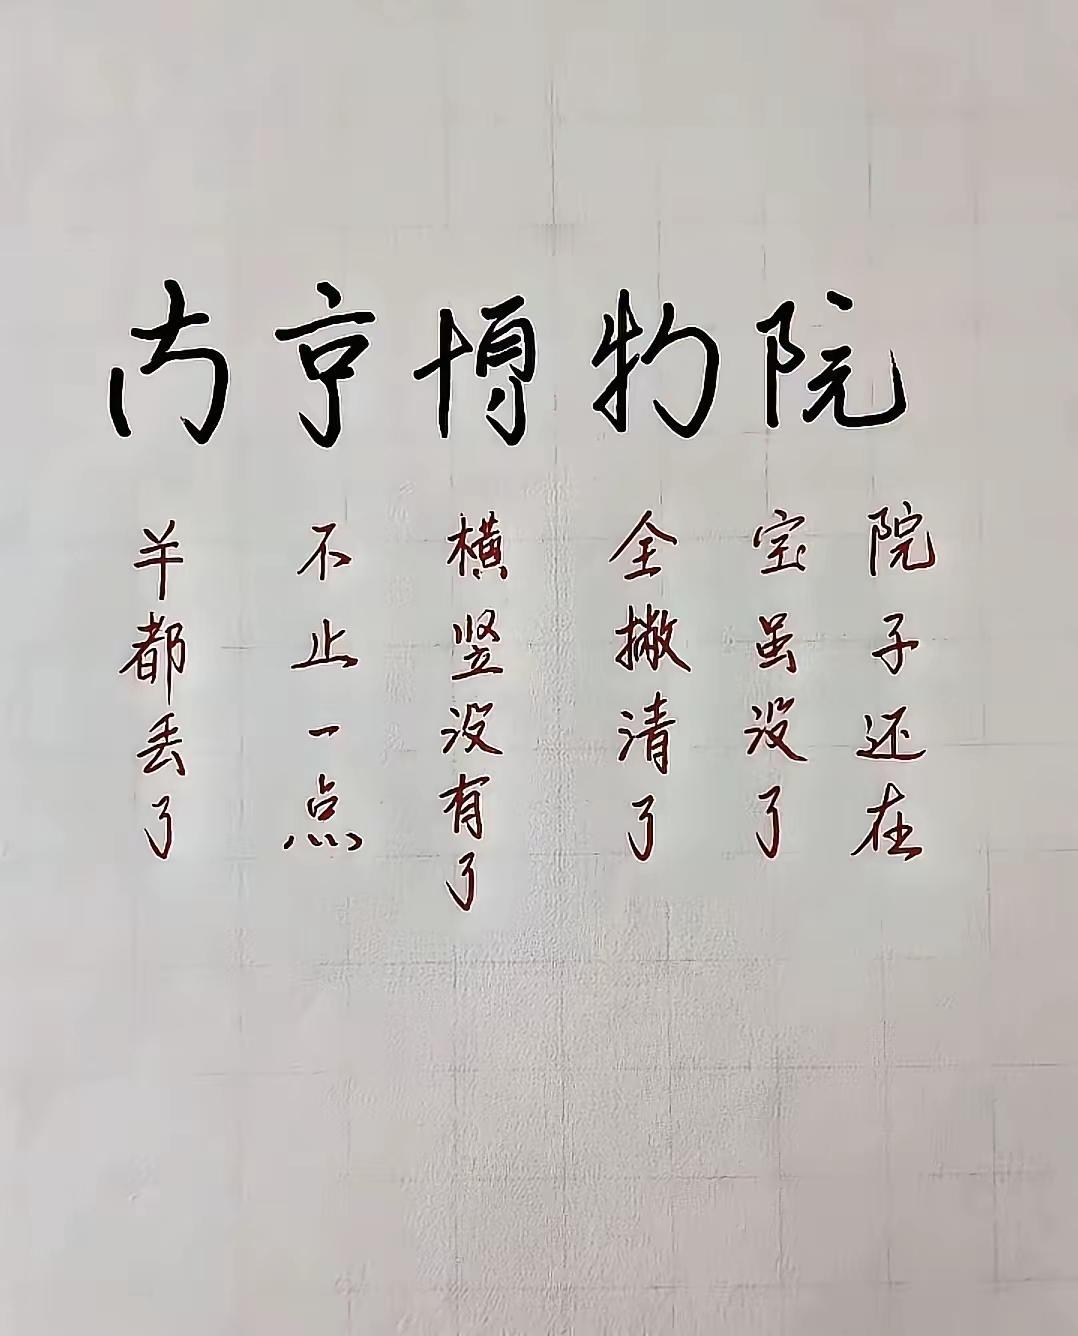 南京博物院
羊都丢了
不止一点
横竖没有了
全撇清了
宝虽没了
院子还在